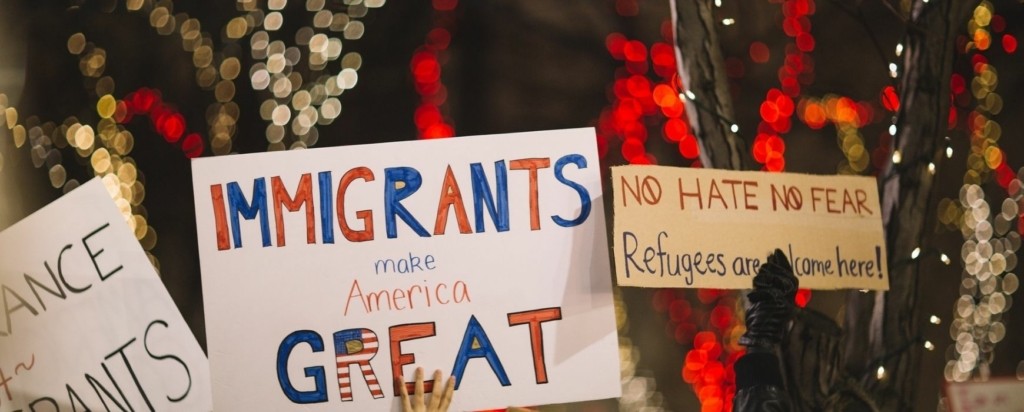 IMMIGRANTS
make
America
GREAT
NO HATE NO FEAR
Refugees are lcome here!
ANCE
RANTS